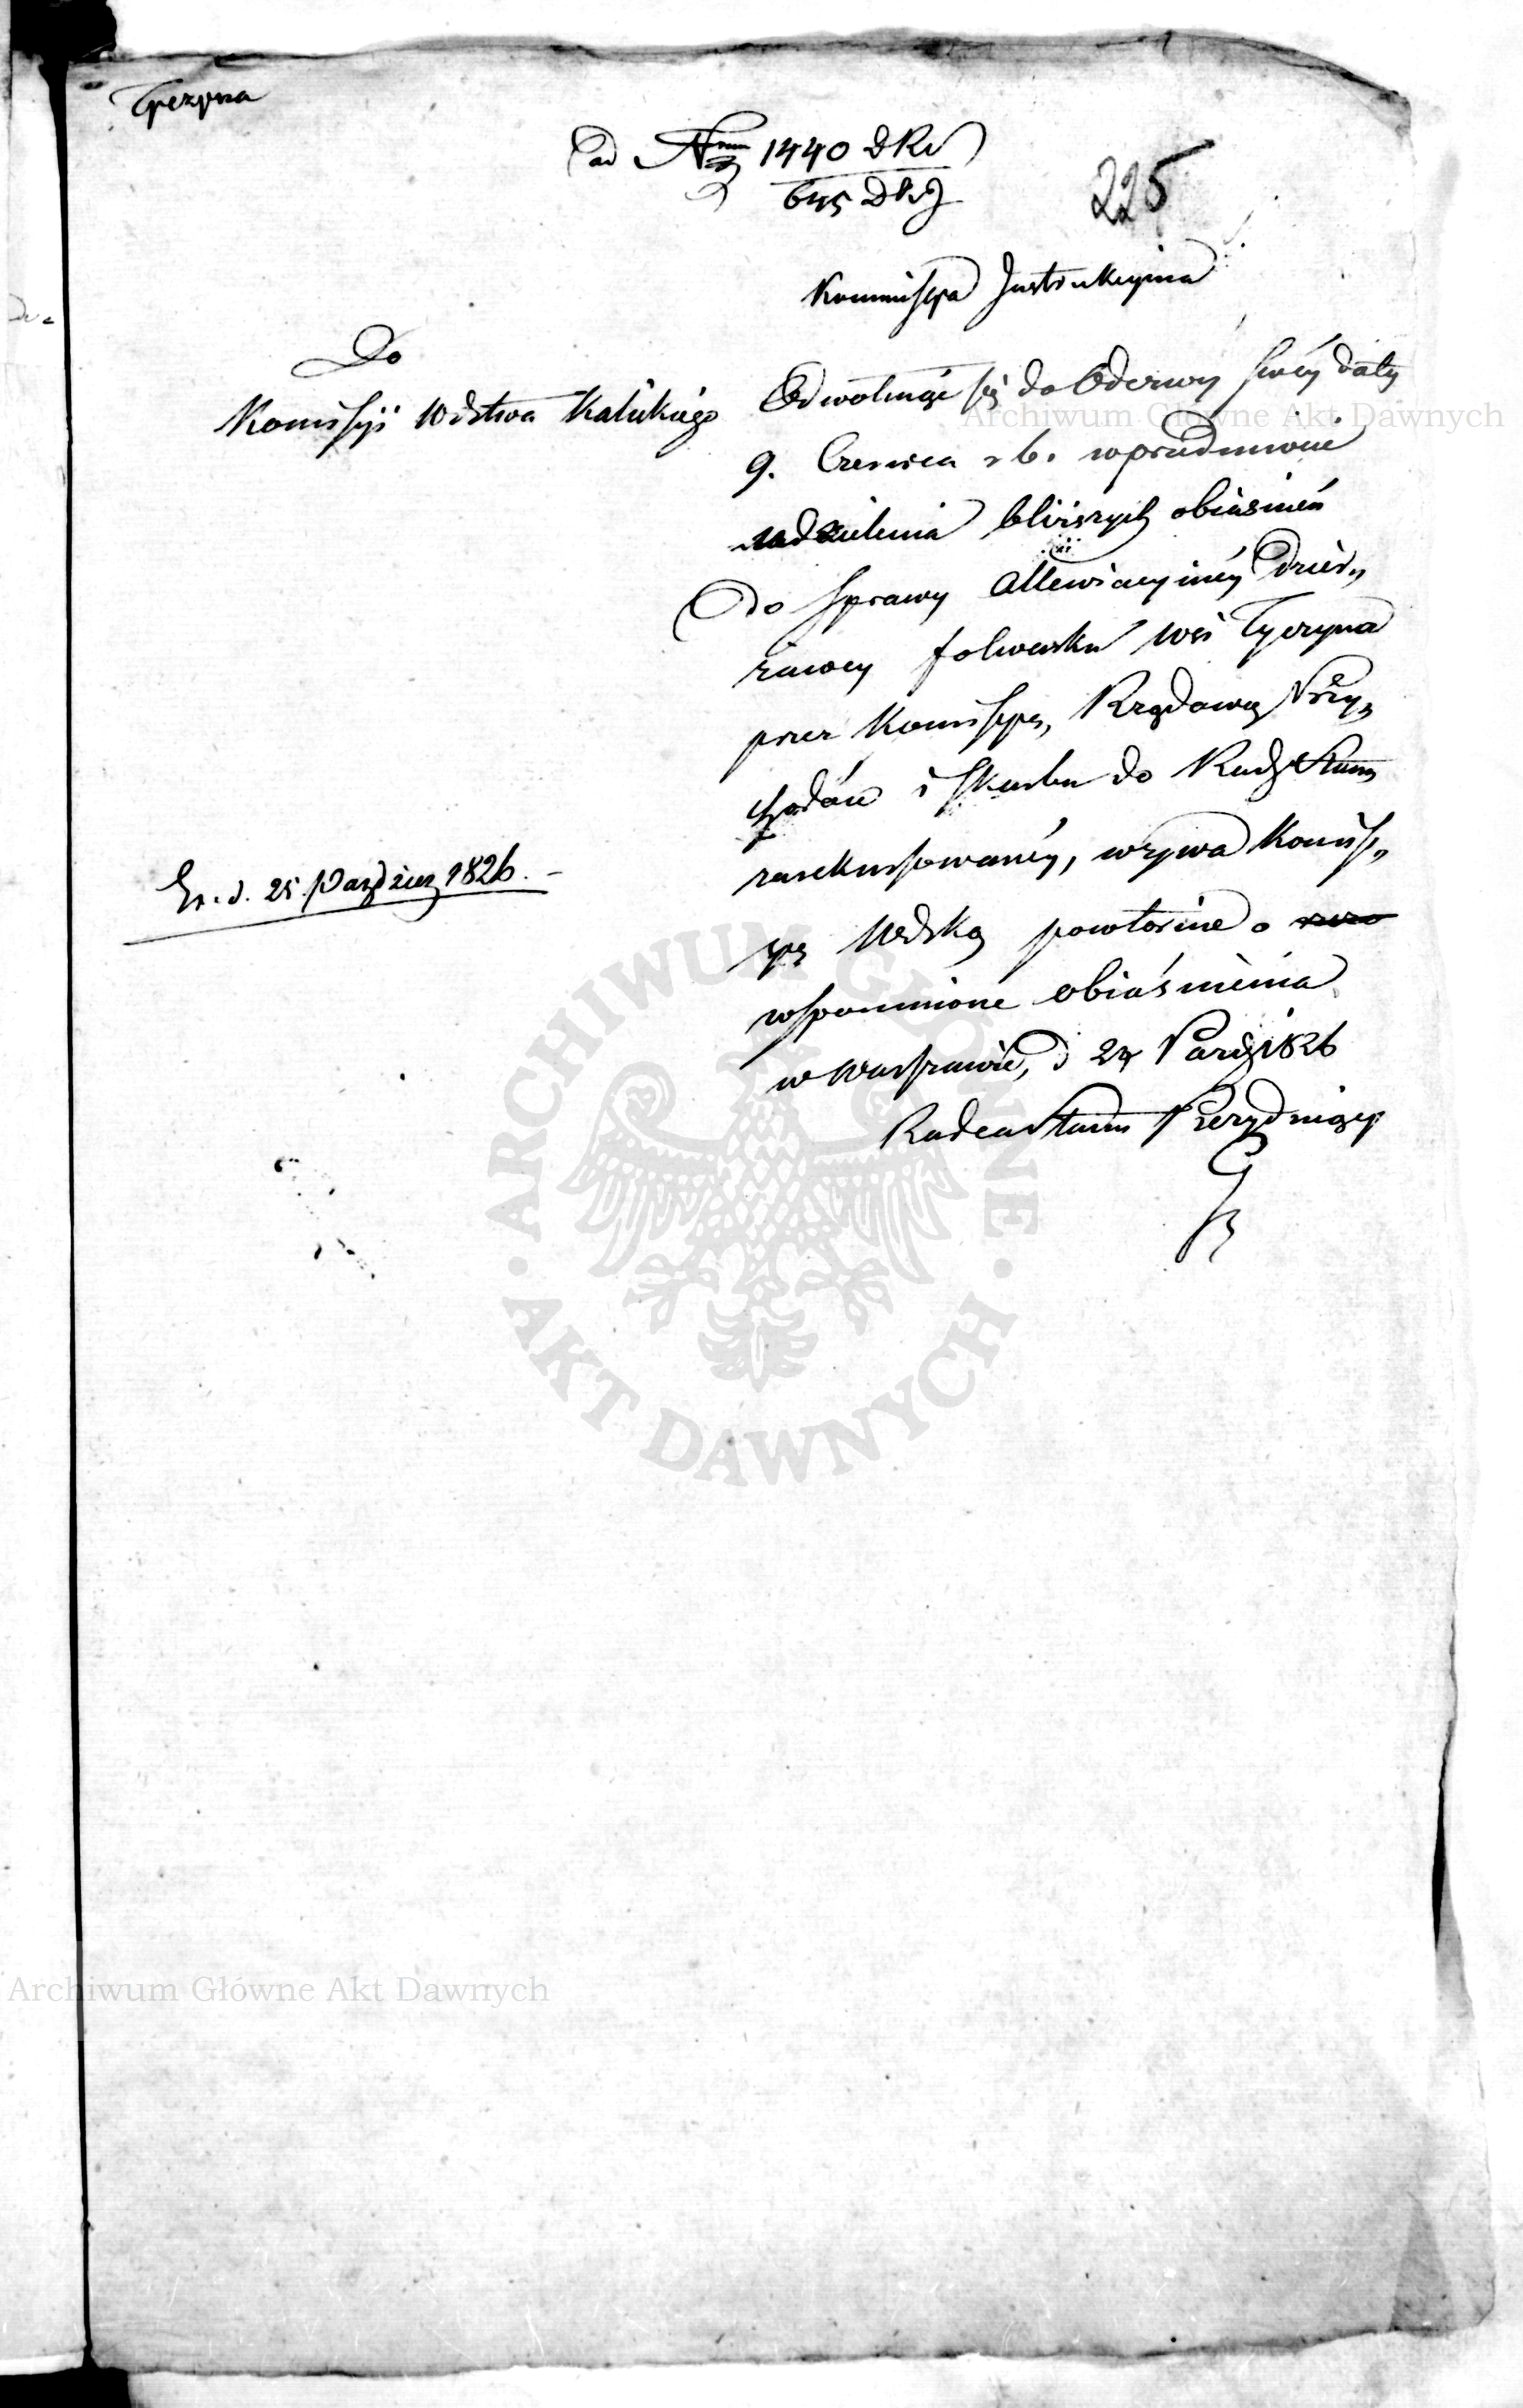 Tyczyna
ad Nrum 1440 DKi
645 DKJ
225
Kommissya Instrukcyina
Do
Komissyi Wdztwa Kaliskiego
Odwołuiąc się do Odezwy swéy daty
9. Czerwca r b. w przedmiocie
udzielenia bliższych obiaśnień
do sprawy allewiacyinéy Dzier„
żawcy folwarku wsi Tyczyna
przez Komissyą Rządową Przy„
chodów i Skarbu do Rady Stanu
zarekursowanéy, wzywa Komiss„
syą Wdzką powtórnie o
wspomnione obiaśnienia
w Warszawie, d 24 Paźdź 1826
Radca Stanu Prezyduiący
Ex. d. 25. Paździer 1826. –
Archiwum Główne Akt Dawnych
ARCHIWUM GŁÓWNE
AKT DAWNYCH
Archiwum Główne Akt Dawnych